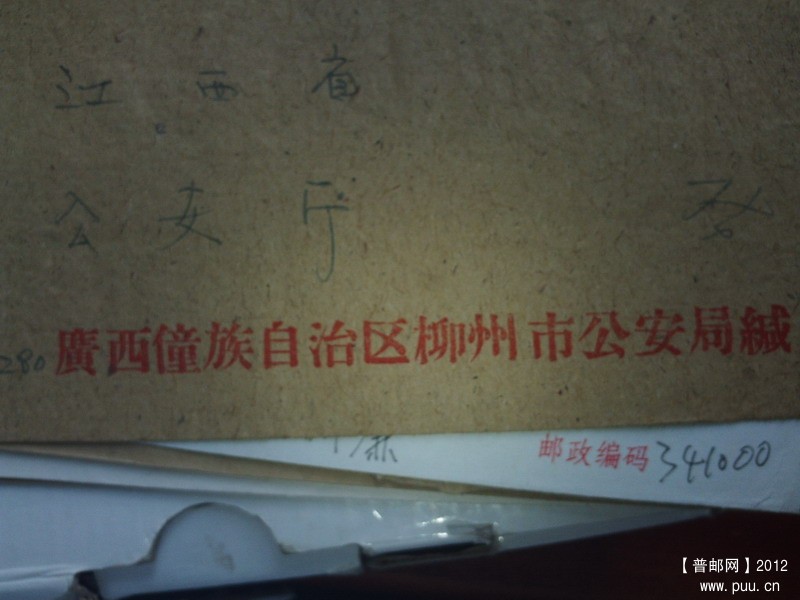 江西省
公安厅 啓
280 廣西僮族自治区柳州市公安局緘
邮政编码 341000
【普邮网】2012
www.puu.cn